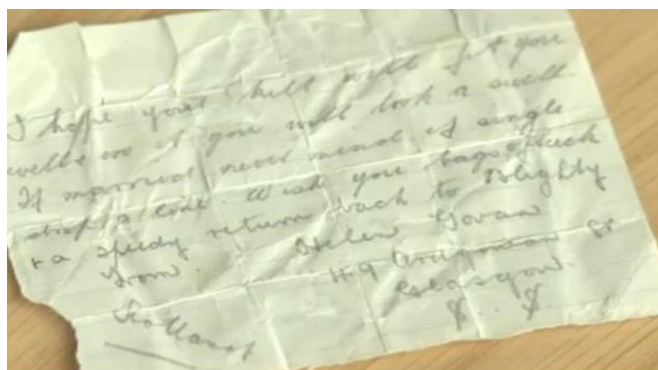 I hope your kilt will fit you
well & in it you will look a swell
If married never mind if single
drop a line. Wish you bags of luck
+ a speedy return back to Blighty
From Helen Govan
49 St
Glasgow.
Scotland